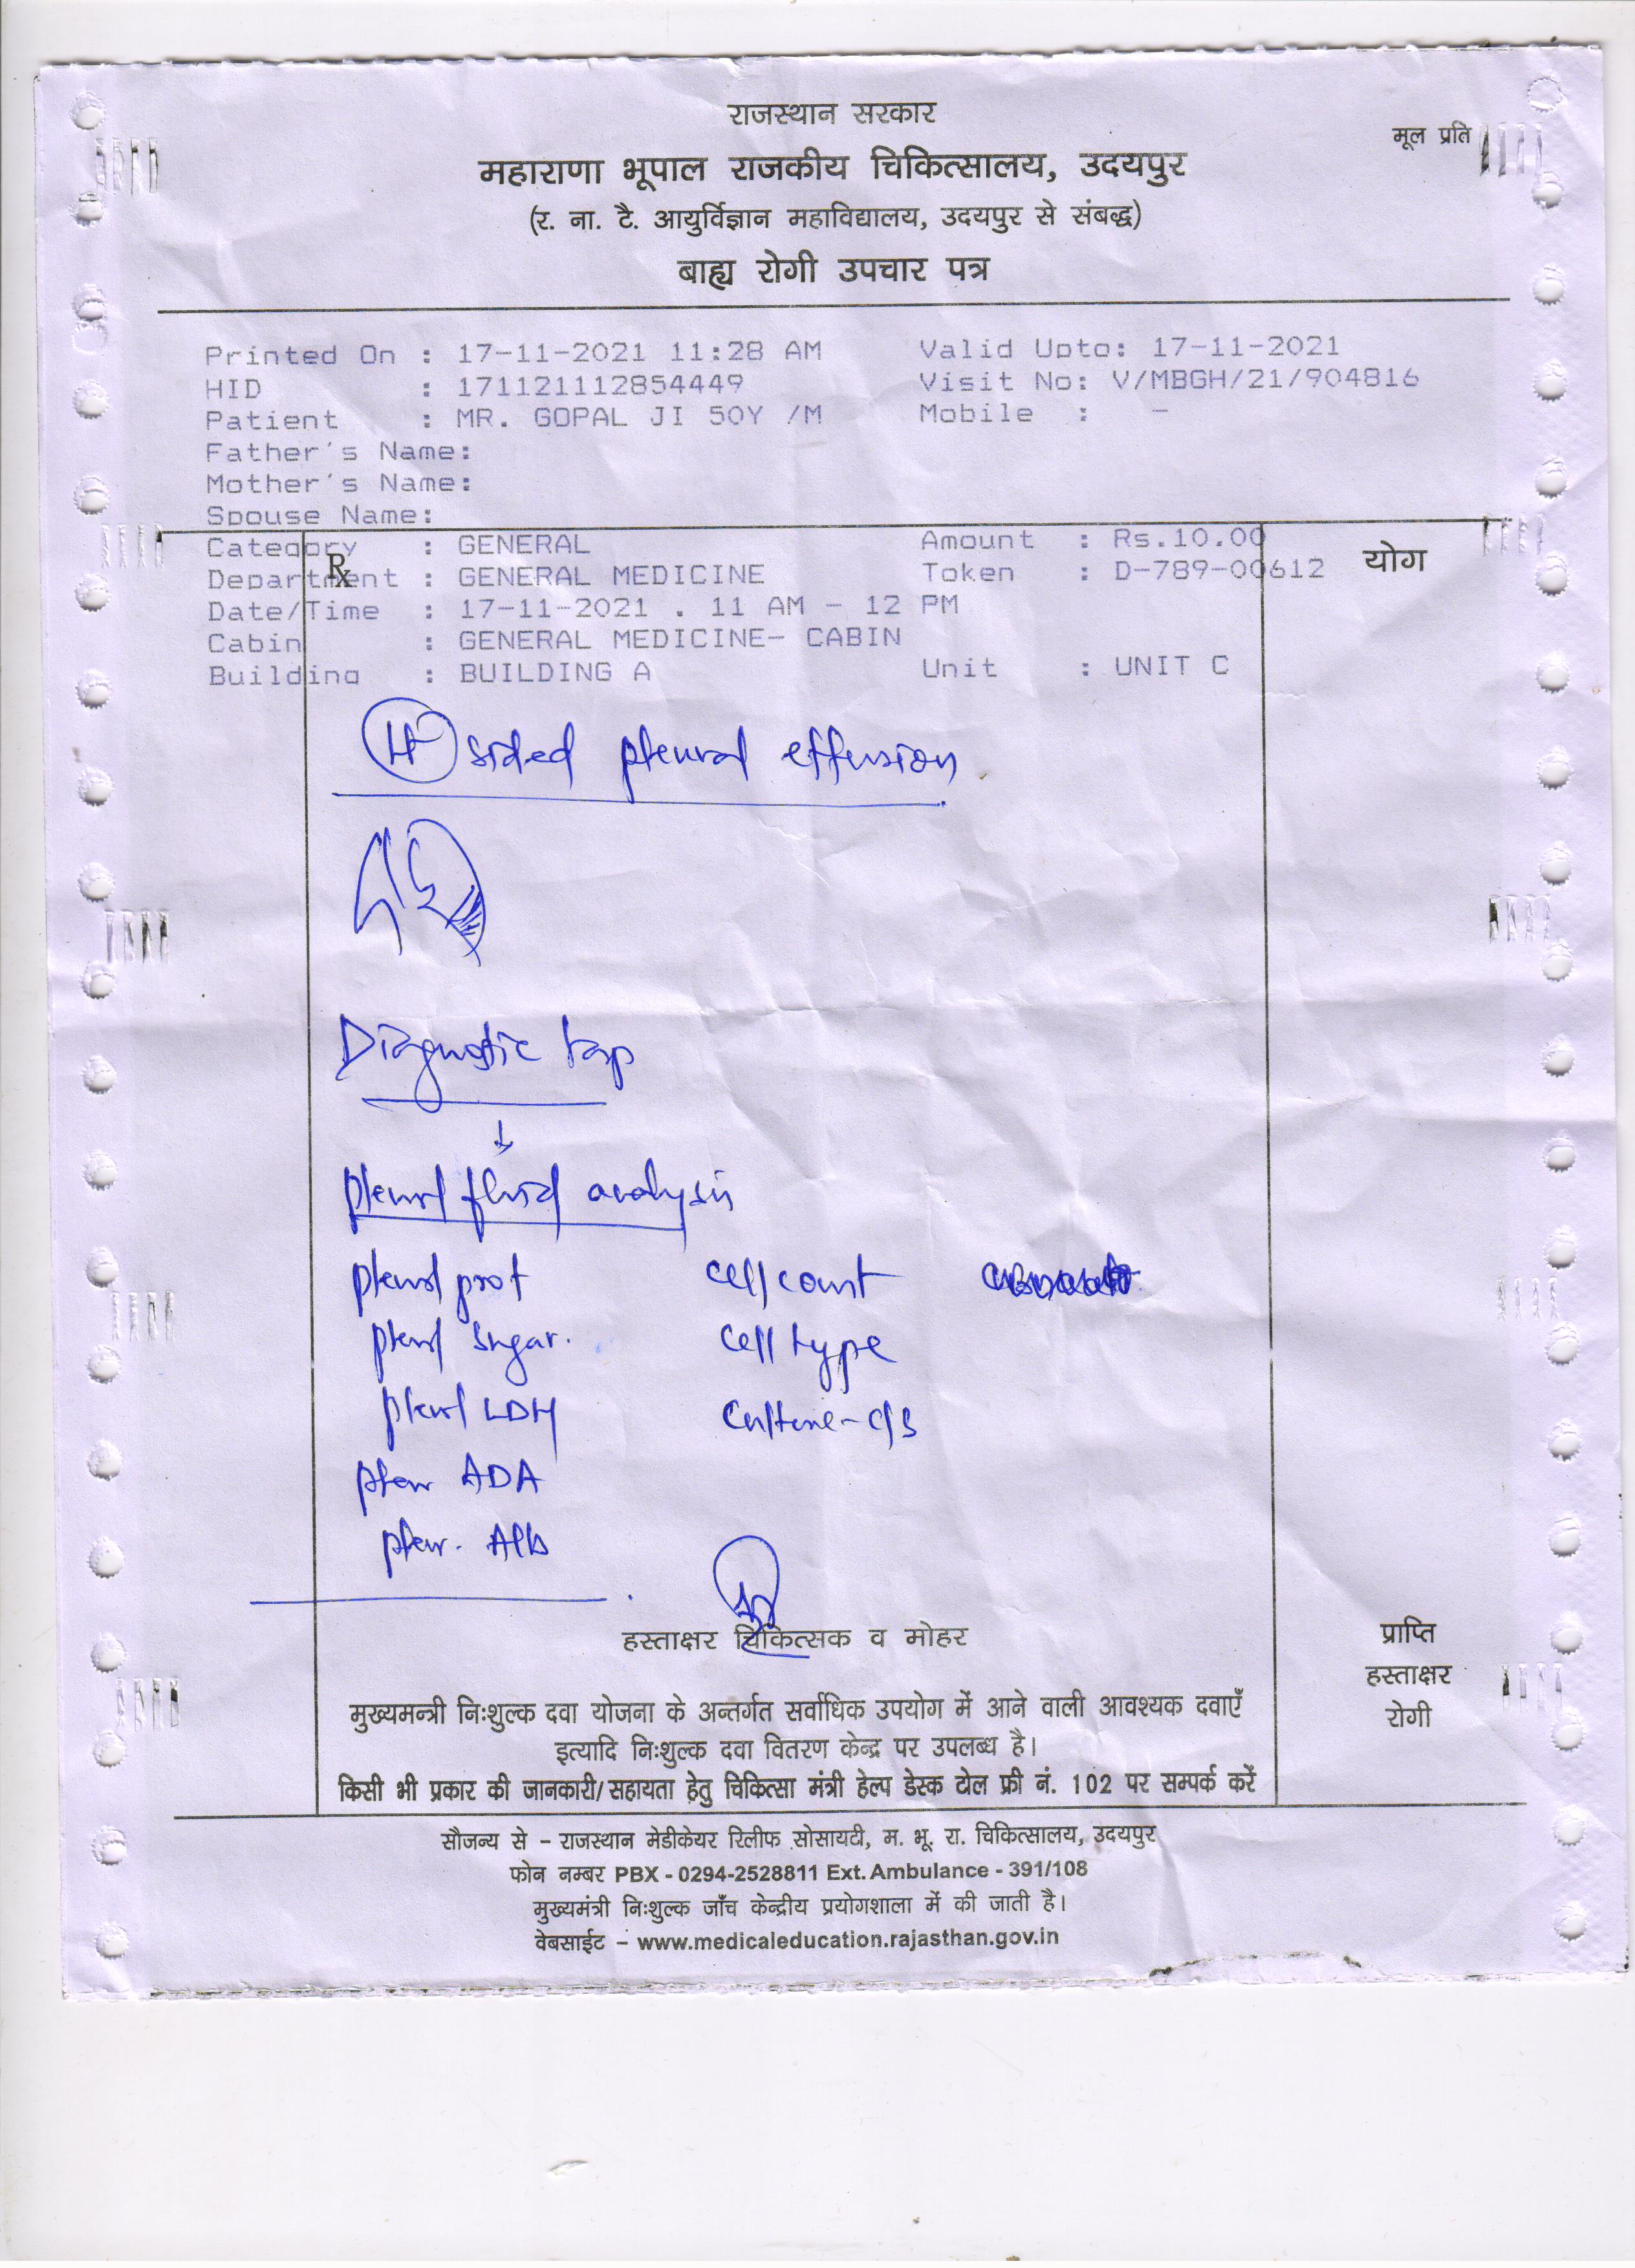 राजस्थान सरकार
मूल प्रति
महाराणा भूपाल राजकीय चिकित्सालय, उदयपुर
(र. ना. टै. आयुर्विज्ञान महाविद्यालय, उदयपुर से संबद्ध)
बाह्य रोगी उपचार पत्र
Printed On : 17-11-2021 11:28 AM Valid Upto: 17-11-2021
HID : 171121112854449 Visit No: V/MBGH/21/904816
Patient : MR. GOPAL JI 50Y /M Mobile : -
Father's Name:
Mother's Name:
Spouse Name:
Category : GENERAL Amount : Rs.10.00
Rx योग
Department : GENERAL MEDICINE Token : D-789-00612
Date/Time : 17-11-2021 . 11 AM - 12 PM
Cabin : GENERAL MEDICINE- CABIN
Building : BUILDING A Unit : UNIT C
Lt sided pleural effusion
Diagnostic tap
↓
pleural fluid analysis
pleural prot cell count
pleural sugar. cell type
pleural LDH culture-c/s
pleu ADA
pleu. Alb
हस्ताक्षर चिकित्सक व मोहर
प्राप्ति
हस्ताक्षर
रोगी
मुख्यमन्त्री निःशुल्क दवा योजना के अन्तर्गत सर्वाधिक उपयोग में आने वाली आवश्यक दवाएँ
इत्यादि निःशुल्क दवा वितरण केन्द्र पर उपलब्ध है।
किसी भी प्रकार की जानकारी/सहायता हेतु चिकित्सा मंत्री हेल्प डेस्क टोल फ्री नं. 102 पर सम्पर्क करें
सौजन्य से - राजस्थान मेडीकेयर रिलीफ सोसायटी, म. भू. रा. चिकित्सालय, उदयपुर
फोन नम्बर PBX - 0294-2528811 Ext. Ambulance - 391/108
मुख्यमंत्री निःशुल्क जाँच केन्द्रीय प्रयोगशाला में की जाती है।
वेबसाईट - www.medicaleducation.rajasthan.gov.in